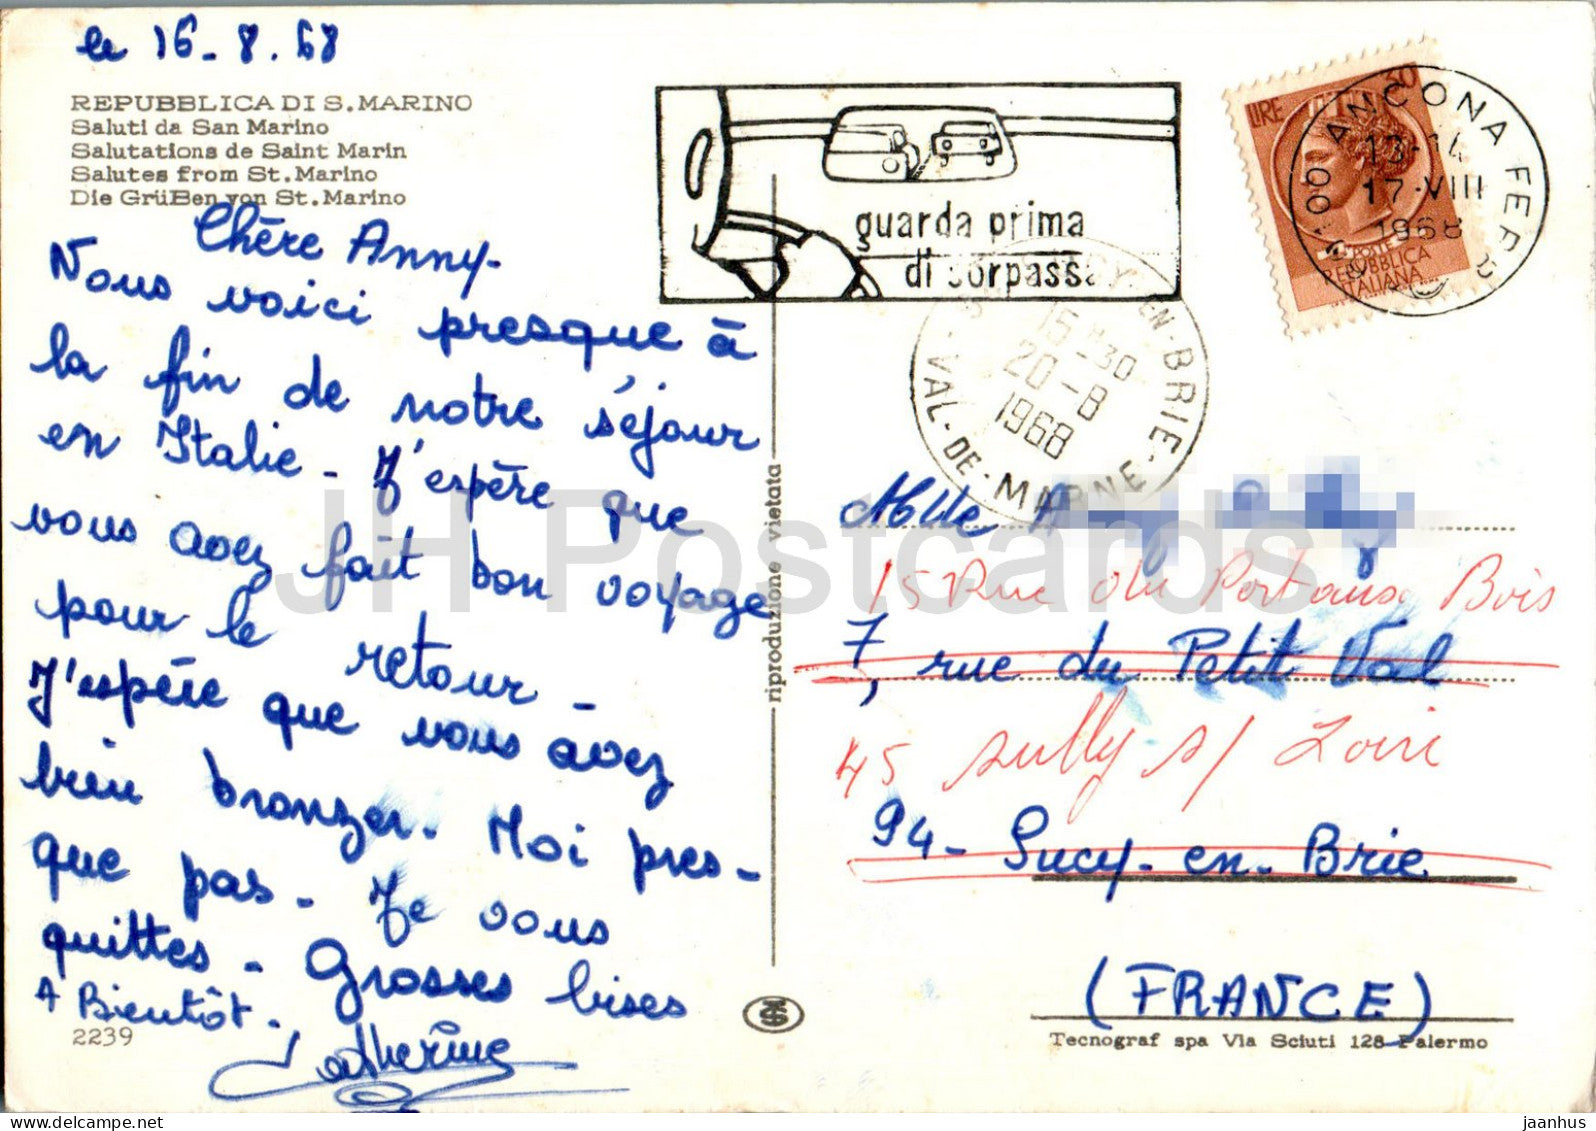 le 16-8.68
REPUBBLICA DI S. MARINO
Saluti da San Marino
Salutations de Saint Marin
Salutes from St. Marino
Die Grüßen von St. Marino
Chère Anny-
Nous voici presque à
la fin de notre séjour
en Italie - J'espère que
vous avez fait bon voyage
pour le retour -
J'espère que vous avez
bien bronzer. Moi pres-
que pas - Je vous
quittes - Grosses bises
A Bientôt -
Catherine
2239
riproduzione vietata
guarda prima
di sorpassa
LIRE 30
POSTE
REPUBBLICA
ITALIANA
ANCONA FERR
13-14
17·VIII
1968
EN-BRIE-
15H30
20-8
1968
VAL-DE-MARNE
Mlle A
15 Rue du Portaus Bois
7, rue du Petit Val
45 Sully s/ Loire
94- Sucy-en-Brie
(FRANCE)
Tecnograf spa Via Sciuti 128 Palermo
JH Postcards
www.delcampe.net
jaanhus